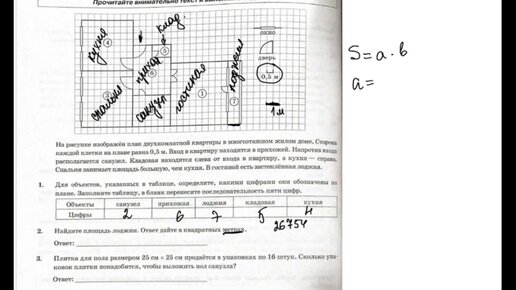 Прочитайте внимательно текст и
клад.
кухня
4
5
прихож
6
спальня
2
санузл
гостиная
1
лоджия
7
окно
дверь
0,5 м
1м
S=a·b
a=
На рисунке изображён план двухкомнатной квартиры в многоэтажном жилом доме. Сторона
каждой клетки на плане равна 0,5 м. Вход в квартиру находится в прихожей. Напротив входа
располагается санузел. Кладовая находится слева от входа в квартиру, а кухня — справа.
Спальня занимает площадь большую, чем кухня. В гостиной есть застеклённая лоджия.
1. Для объектов, указанных в таблице, определите, какими цифрами они обозначены на
плане. Заполните таблицу, в бланк перенесите последовательность пяти цифр.
Объекты санузел прихожая лоджия кладовая кухня
Цифры 2 6 7 5 4
26754
2. Найдите площадь лоджии. Ответ дайте в квадратных метрах.
Ответ:
3. Плитка для пола размером 25 см × 25 см продаётся в упаковках по 16 штук. Сколько упа-
ковок плитки понадобится, чтобы выложить пол санузла?
Ответ: